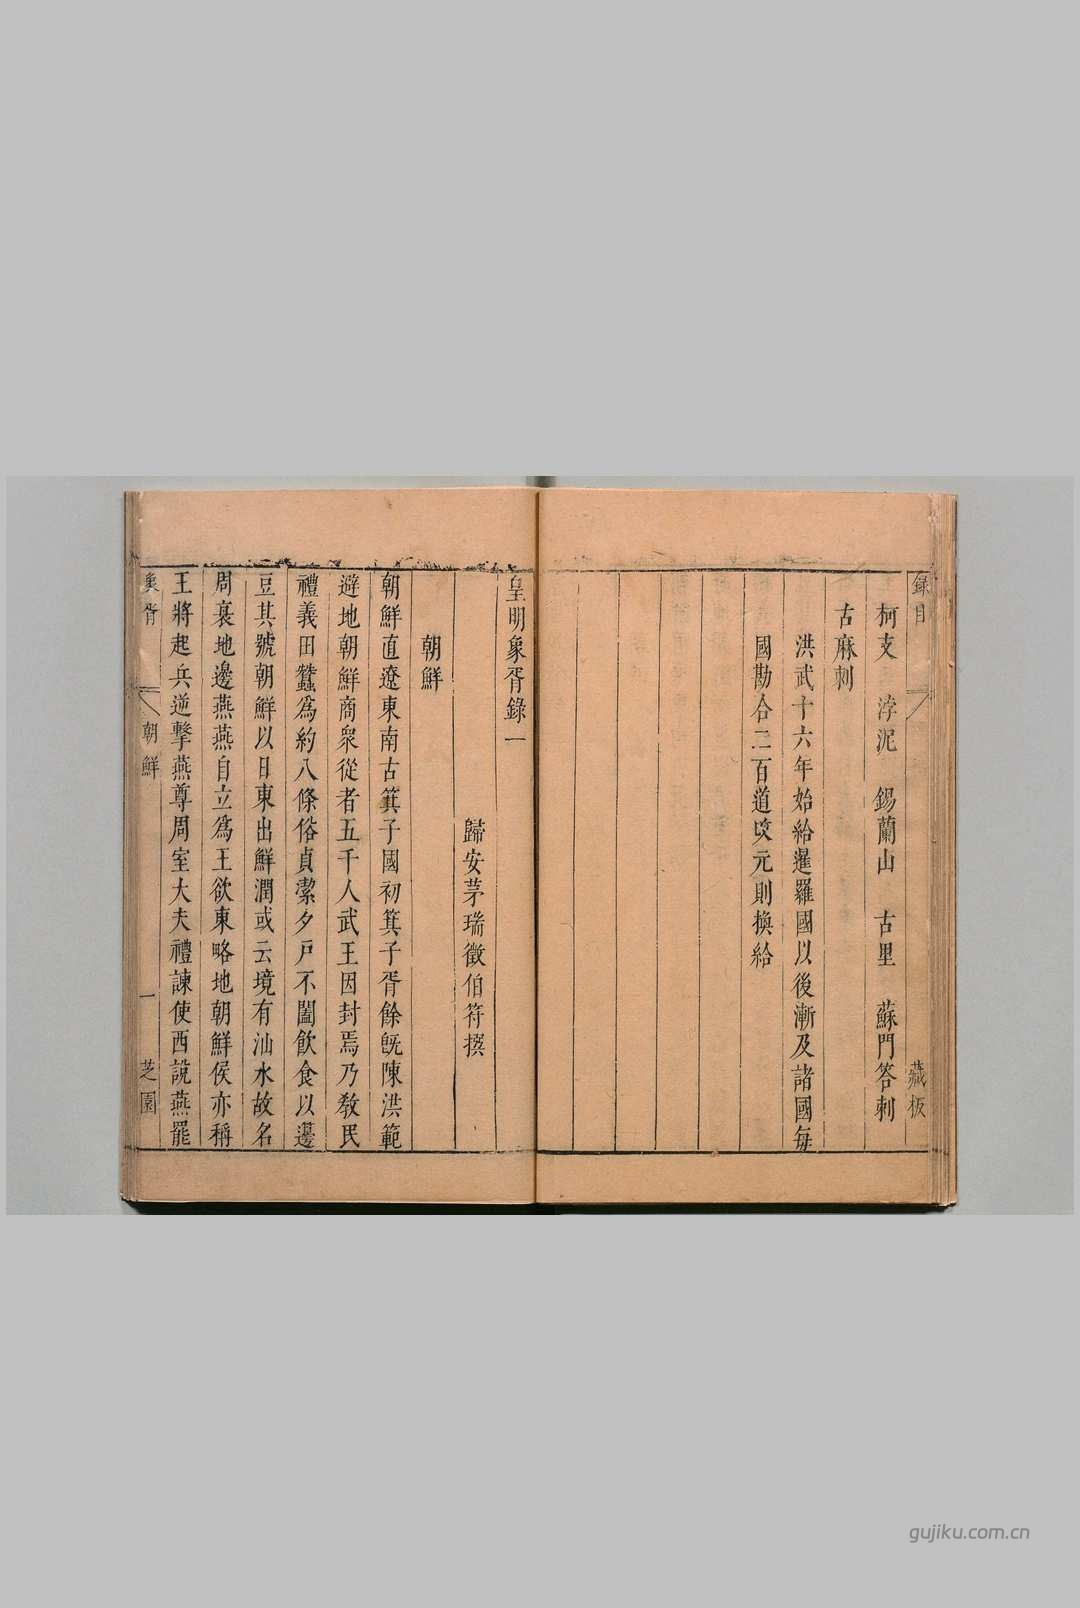 錄目
藏板
柯支 浡泥 錫蘭山 古里 蘇門答剌
古麻剌
洪武十六年始給暹羅國以後漸及諸國每
國勘合二百道改元則換給
皇明象胥錄一
歸安茅瑞徵伯符撰
朝鮮
朝鮮直遼東南古箕子國初箕子胥餘旣陳洪範
避地朝鮮商衆從者五千人武王因封焉乃敎民
禮義田蠶爲約八條俗貞潔夕戸不闔飮食以籩
豆其號朝鮮以日東出鮮潤或云境有汕水故名
周衰地邊燕燕自立爲王欲東略地朝鮮侯亦稱
王將起兵逆擊燕尊周室大夫禮諫使西說燕罷
象胥
朝鮮
一
芝園
gujiku.com.cn